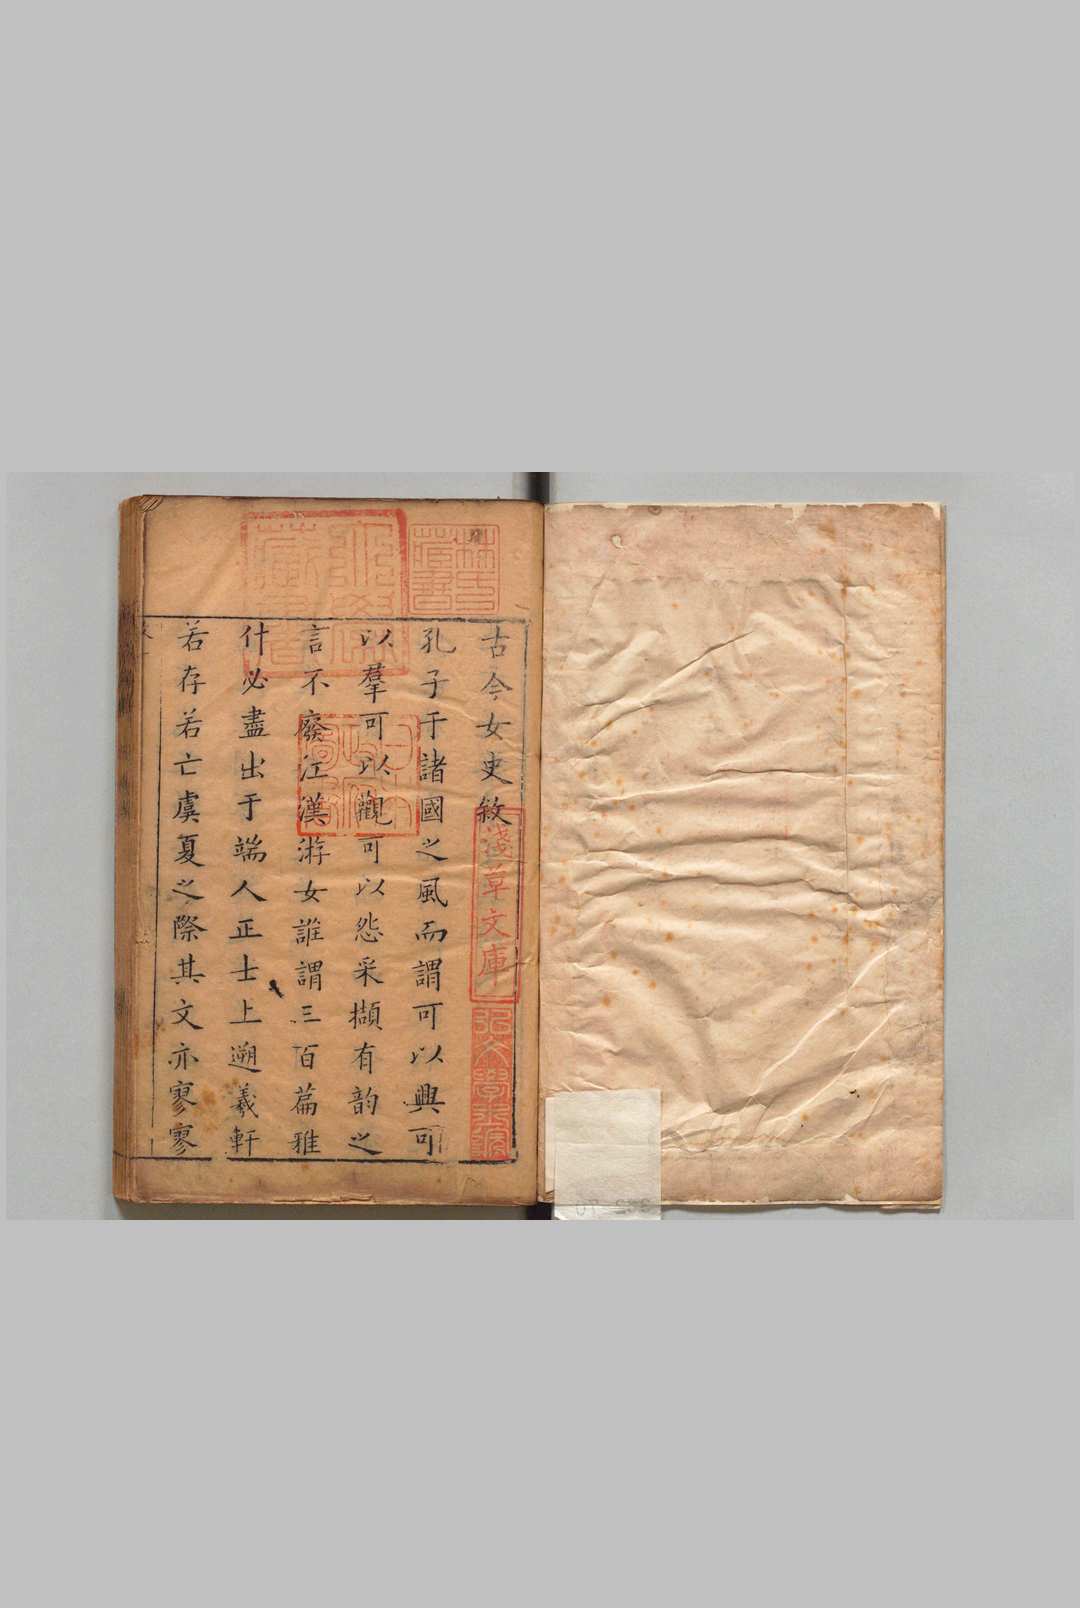 古今女史敘
孔子于諸國之風而謂可以興可
以羣可以觀可以怨采擷有韵之
言不廢江漢游女誰謂三百篇雅
什必盡出于端人正士上遡羲軒
若存若亡虞夏之際其文亦寥寥
林氏藏書
日本政府圖書
淺草文庫